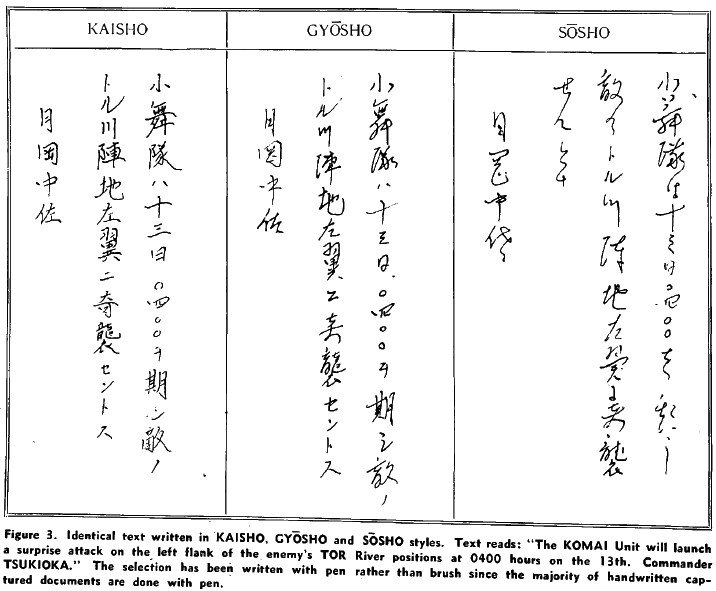 KAISHO
小舞隊ハ十三日〇四〇〇ヲ期シ敵ノ
トル川陣地左翼ニ奇襲セントス
月岡中佐
GYŌSHO
小舞隊ハ十三日〇四〇〇ヲ期シ敵ノ
トル川陣地左翼ニ奇襲セントス
月岡中佐
SŌSHO
小舞隊は十三日〇四〇〇を期し
敵のトル川陣地左翼に奇襲
せんとす
月岡中佐
Figure 3. Identical text written in KAISHO, GYŌSHO and SŌSHO styles. Text reads: "The KOMAI Unit will launch
a surprise attack on the left flank of the enemy's TOR River positions at 0400 hours on the 13th. Commander
TSUKIOKA." The selection has been written with pen rather than brush since the majority of handwritten cap-
tured documents are done with pen.